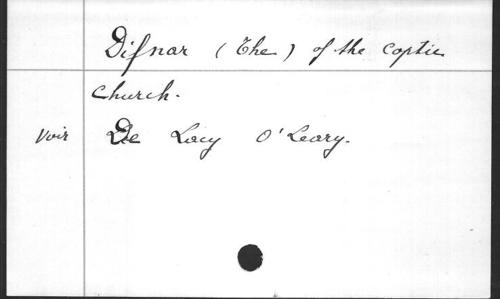 Difnar (The) of the Coptic
Church.
Voir De Lacy O'Leary.